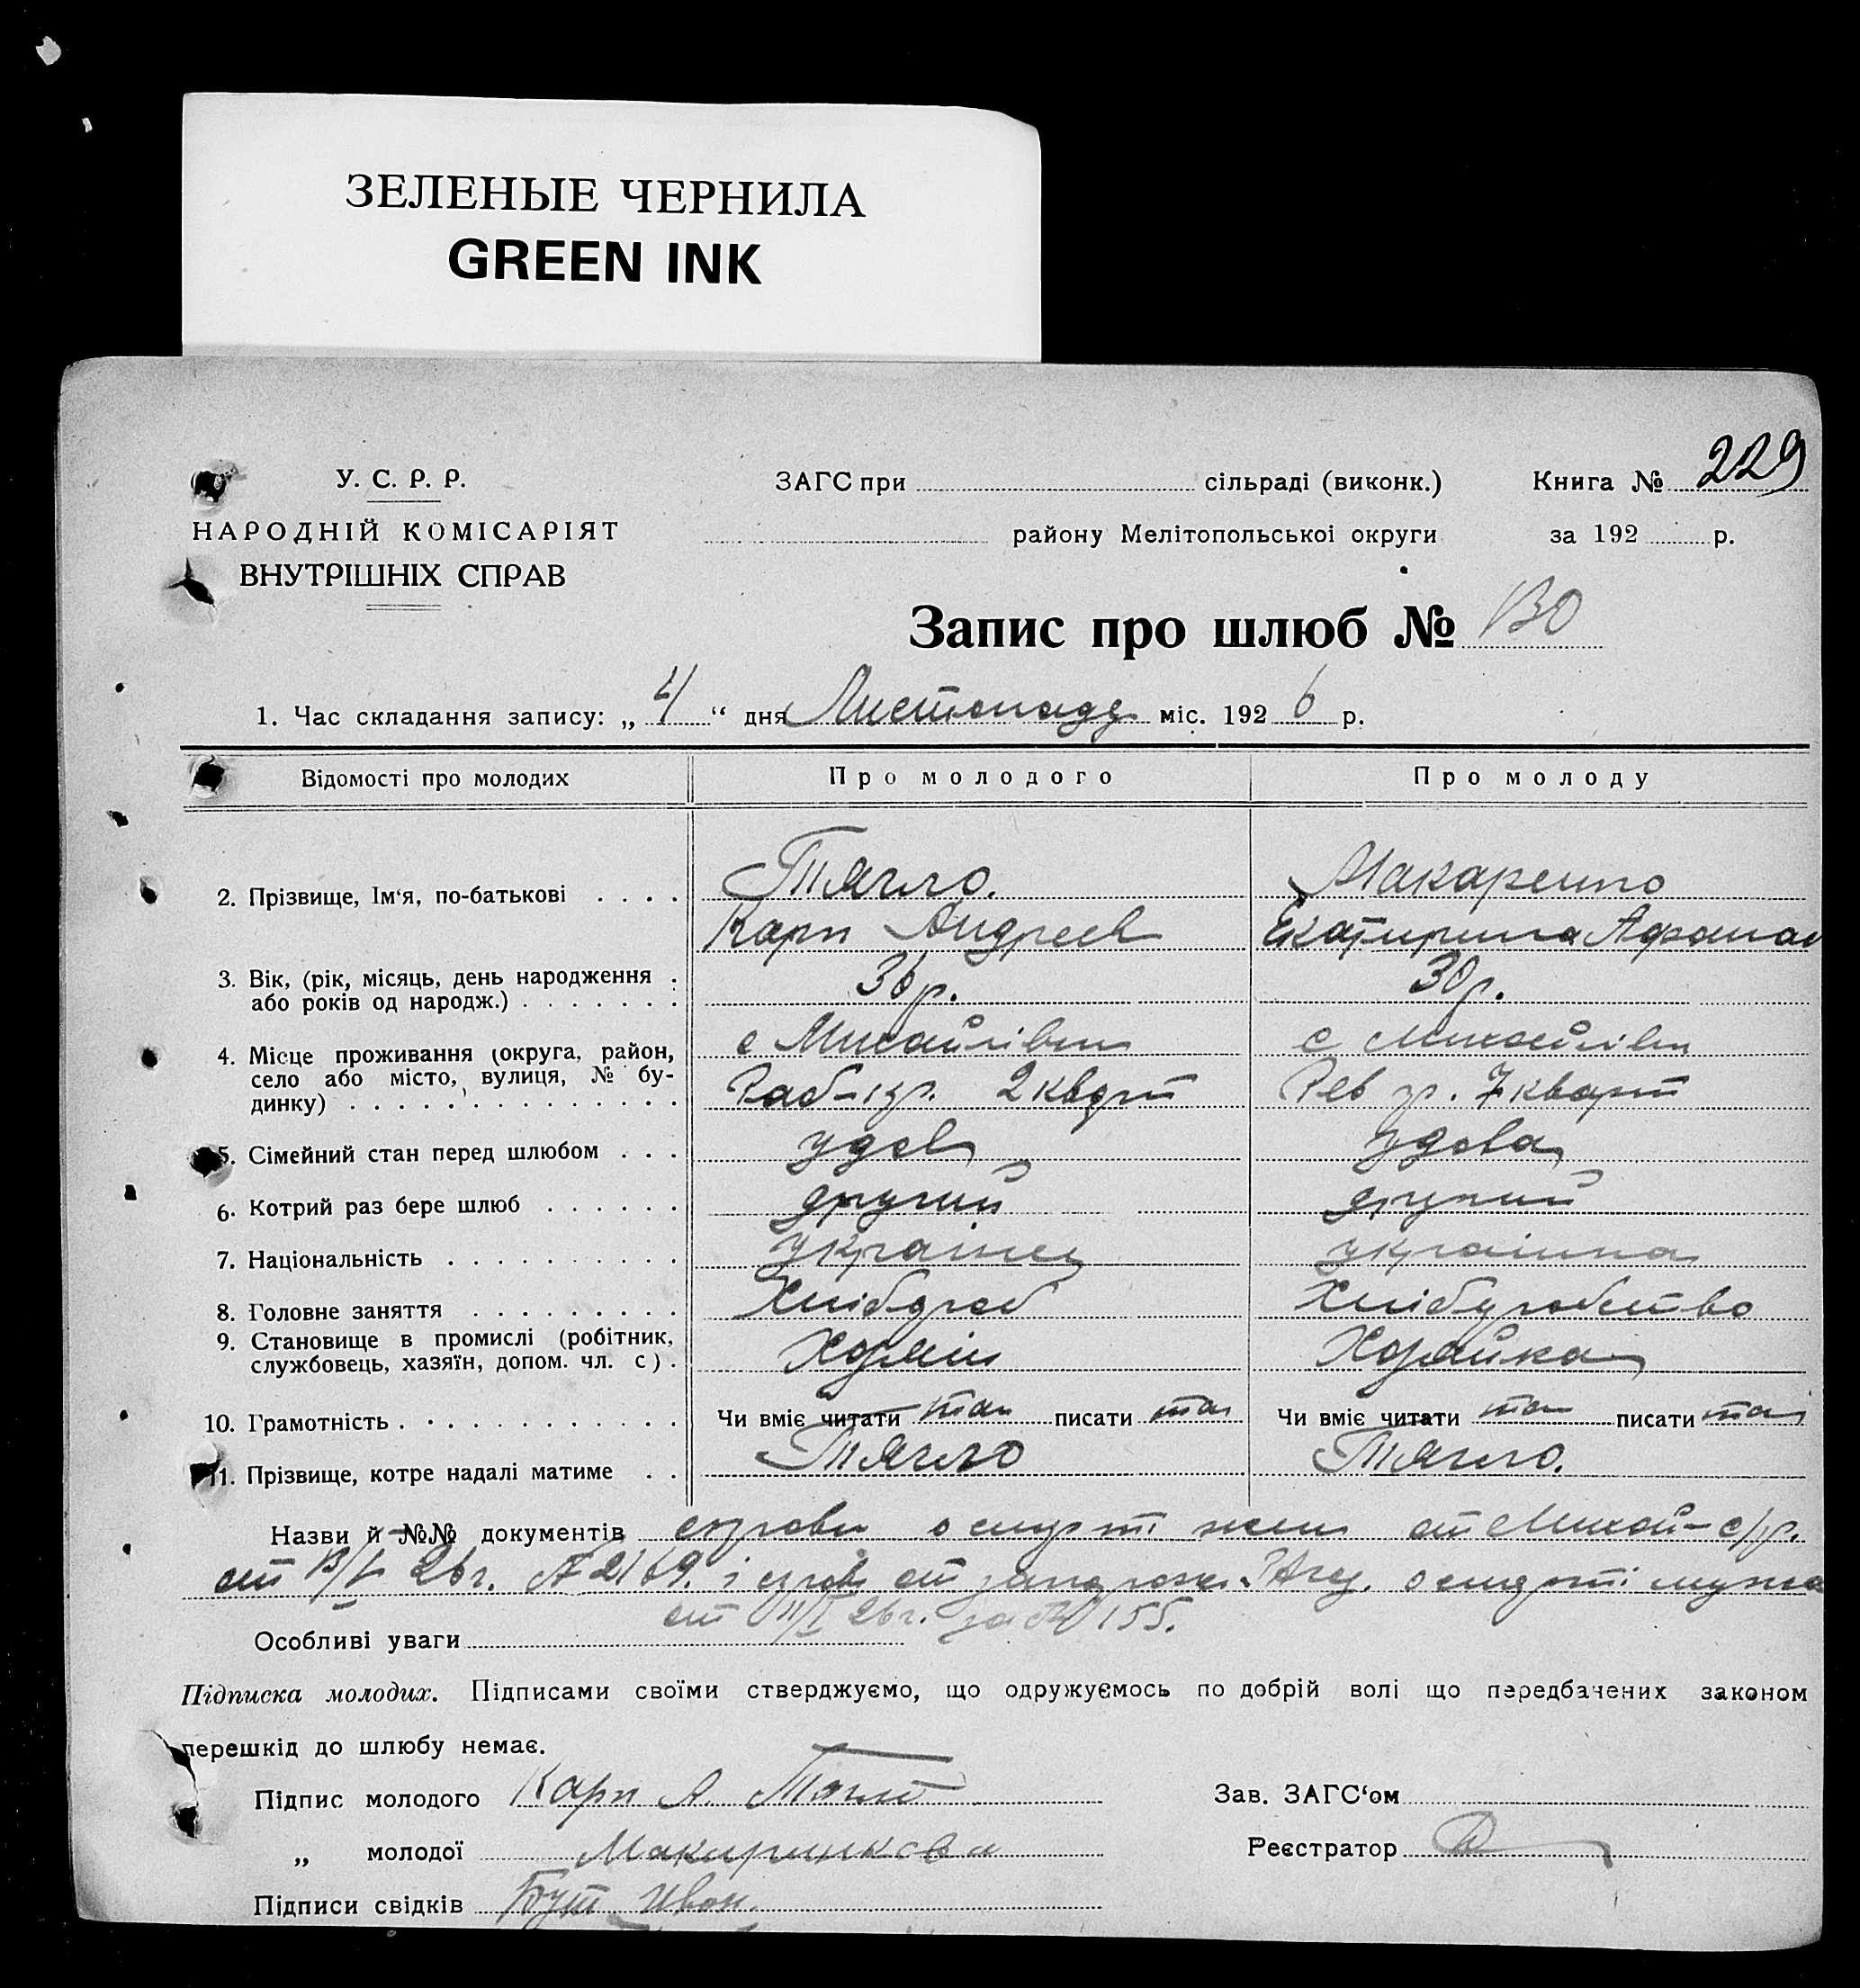 ЗЕЛЕНЫЕ ЧЕРНИЛА
GREEN INK
У. С. Р. Р.
НАРОДНІЙ КОМІСАРІЯТ
ВНУТРІШНІХ СПРАВ
ЗАГС при сільраді (виконк.)
району Мелітопольської округи
Книга № 229
за 192 р.
Запис про шлюб № 130
1. Час складання запису: „ 4 “ дня Листопада міс. 192 6 р.
Відомості про молодих Про молодого Про молоду
2. Прізвище, Ім‘я, по-батькові Тягло. Макаренко
Карп Андреев Екатирина Афанас
3. Вік, (рік, місяць, день народження 36 р. 30 р.
або років од народж.)
4. Місце проживання (округа, район, с Михайлівки с Михайлівки
село або місто, вулиця, № бу-
динку) Раб-гр. 2 кварт Рев гр. 7 кварт
5. Сімейний стан перед шлюбом удов удова
6. Котрий раз бере шлюб другий другий
7. Національність українец українка
8. Головне заняття Хлібороб Хлібуробство
9. Становище в промислі (робітник,
службовець, хазяїн, допом. чл. с). Хозяін Хозяйка
10. Грамотність Чи вміє читати так писати так Чи вміє читати так писати так
11. Прізвище, котре надалі матиме Тягло Тягло.
Назви й №№ документів справки о смерті жени от Михай- с/р.
от 26 г. № 2169. і справ от о смерті мужа
от 11/I 26 г. за № 155.
Особливі уваги
Підписка молодих. Підписами своїми стверджуємо, що одружуємось по добрій волі що передбачених законом
перешкід до шлюбу немає.
Підпис молодого Карп А. Тягло
„ молодої Макаринкова
Підписи свідків Бут Иван.
Зав. ЗАГС‘ом
Реєстратор